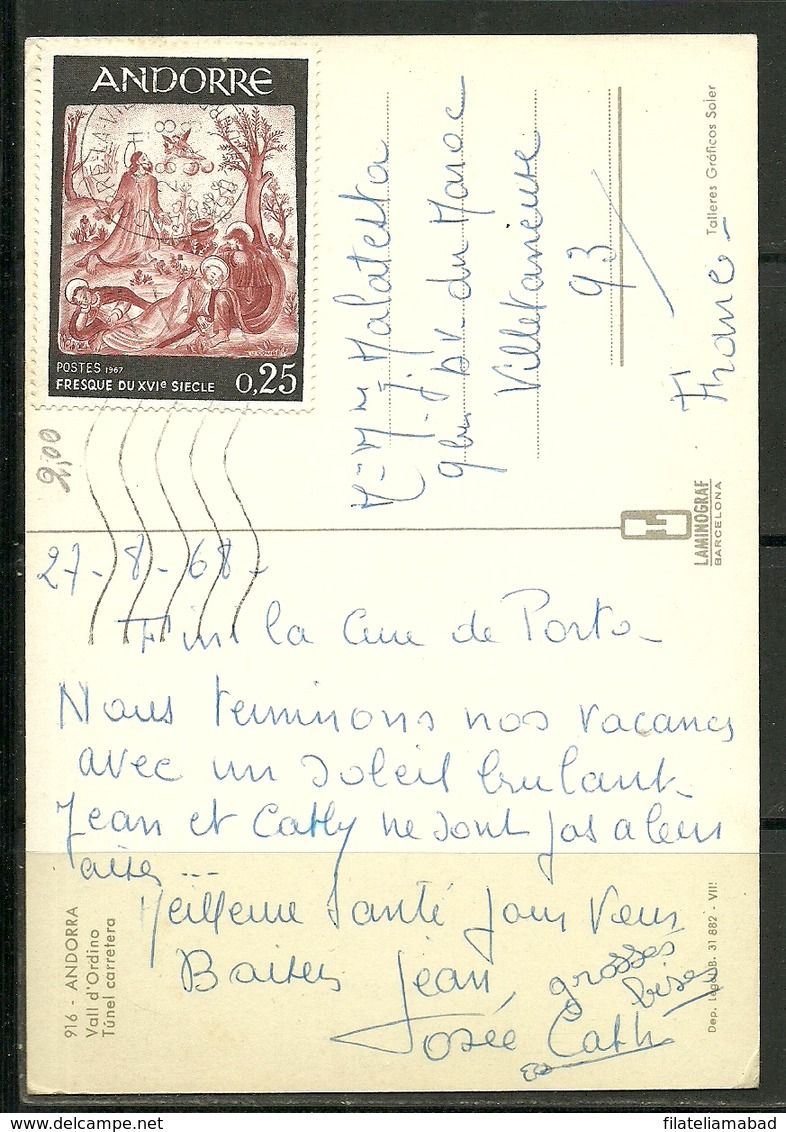 ANDORRE
POSTES 1967
FRESQUE DU XVIe SIECLE
0,25
2,00
Malatesta
9 bis Av du Maroc
Villetaneuse
93
France-
Talleres Gráficos Soler
LAMINOGRAF
BARCELONA
27-8-68-
la Cure de Porto-
Nous terminons nos vacances
avec un soleil brulant-
Jean et Cathy ne sont pas a leur
aise ...
Meilleure santé pour vous
Baisers Jean,
Josée Cath
grosses
bises
916 - ANDORRA
Vall d'Ordino
Túnel carretera
Dep. Legal B. 31 882 - VII
filateliamabad